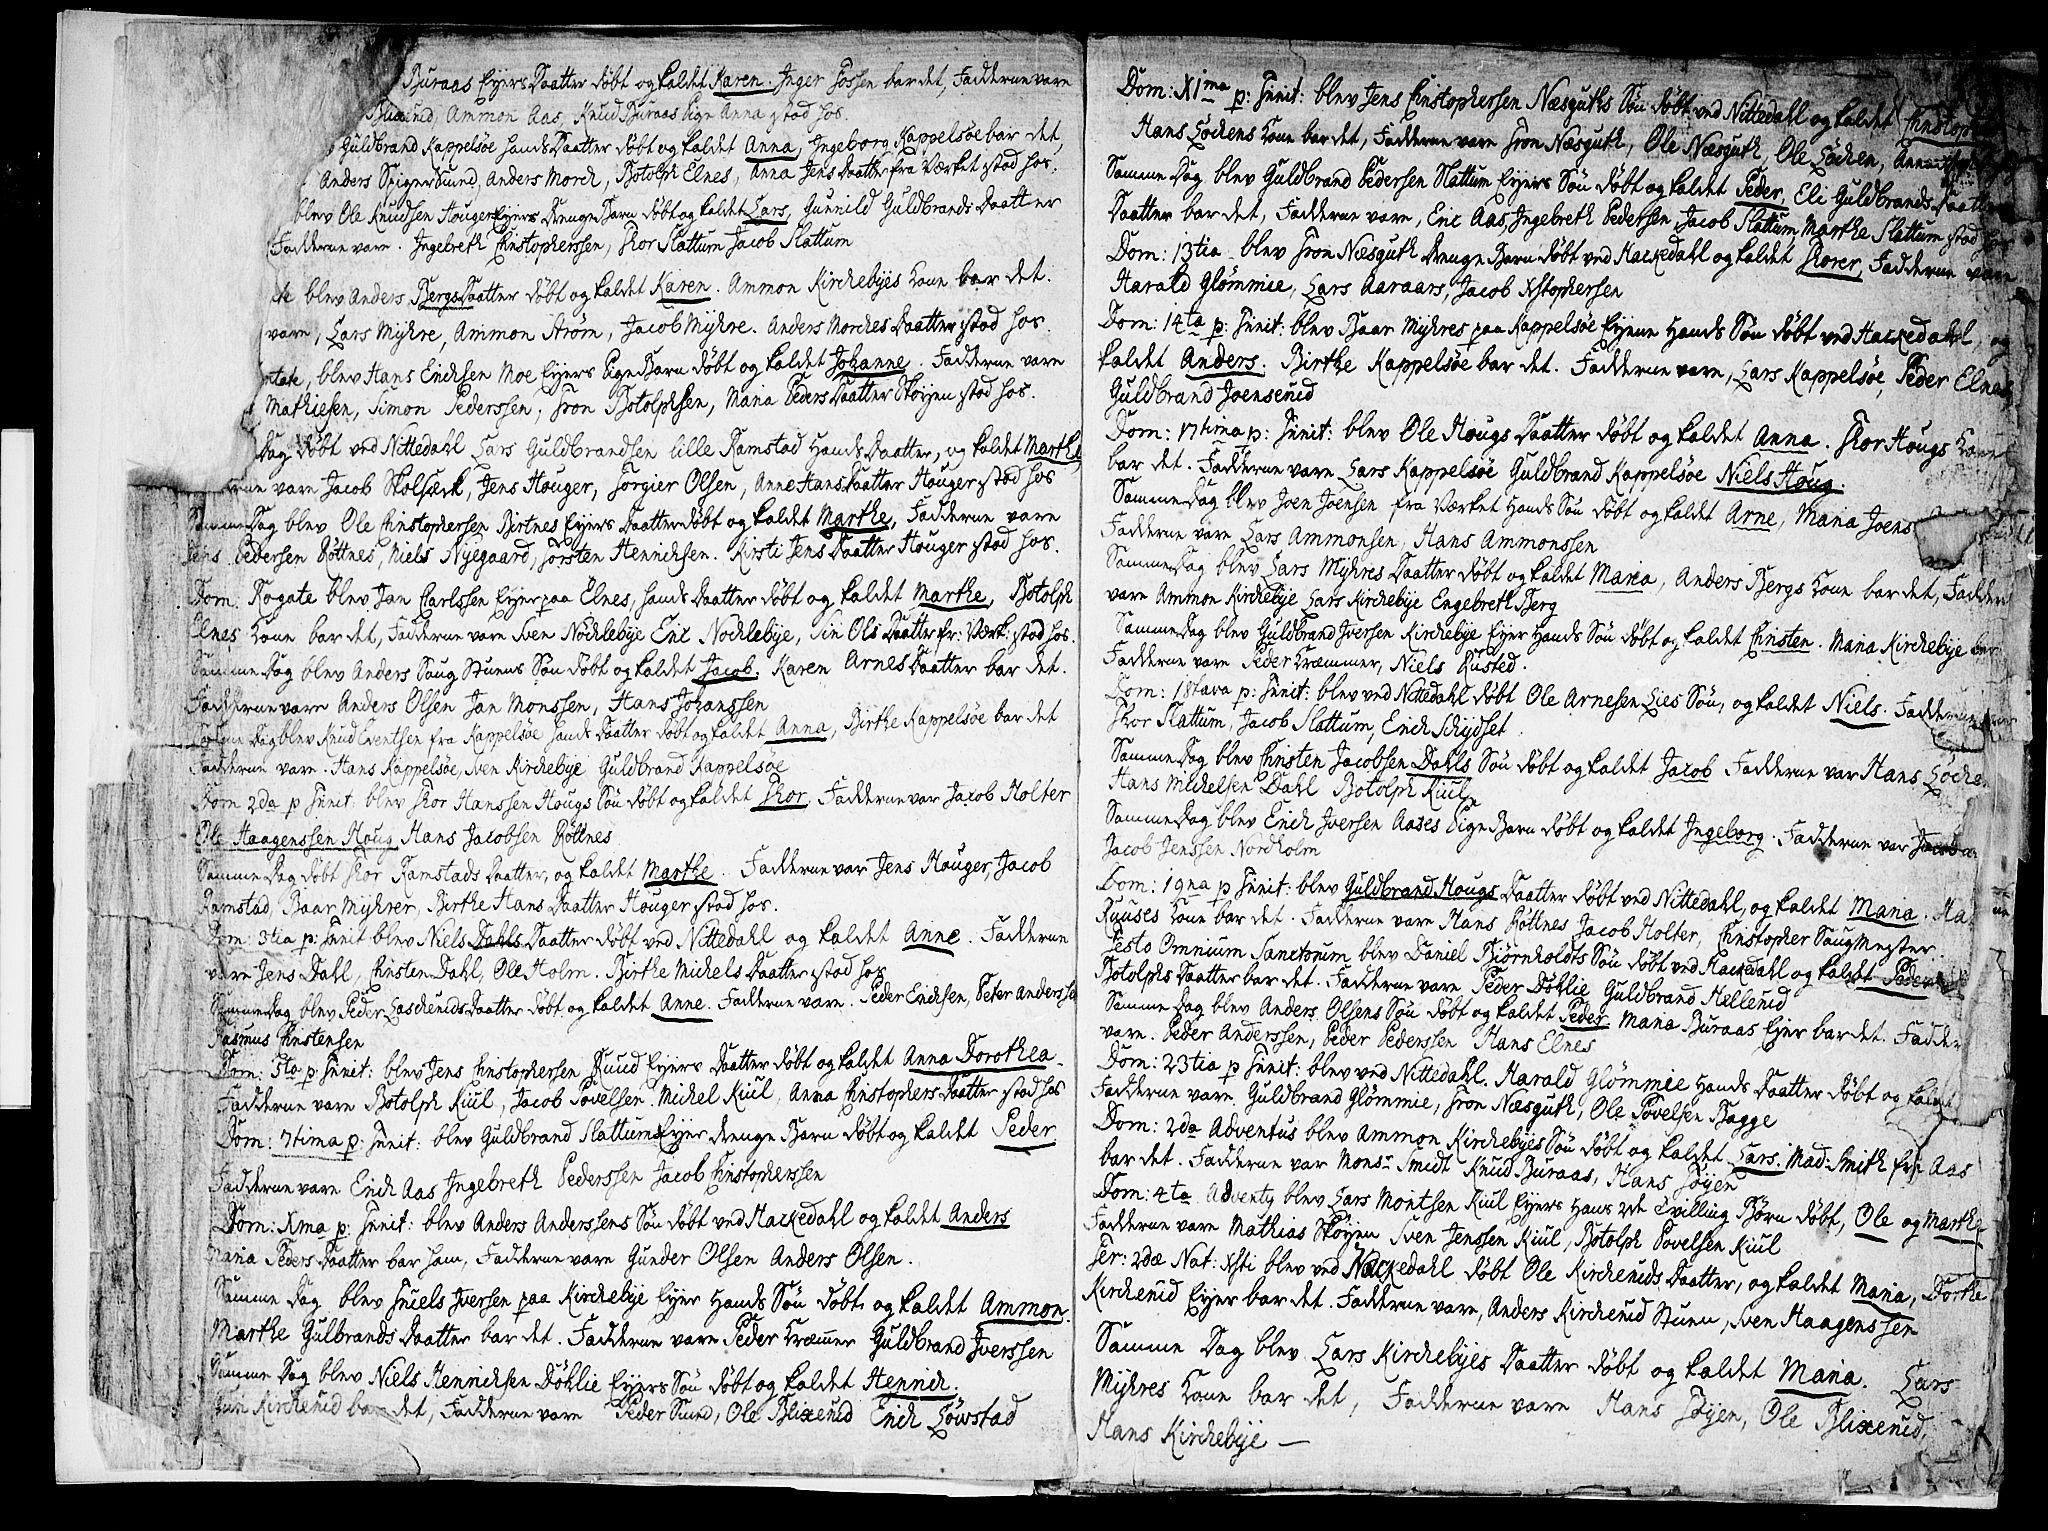 Buraas Eyers Daatter døbt og kaldet Karen. Inger Fossen bar det, Fadderne vare
Blixerud, Ammon Aas, Knud Buraas Pige Anna stod hos.
Guldbrand Kappelsøe hands Daatter døbt og kaldet Anna, Ingeborg Kappelsøe bar det,
Anders Spiger Sund, Anders Morch, Botolph Elnes, Anna Jens Daatter fra Værket stod hos.
blev Ole Knudsen Houger Eyers Drenge Barn døbt og kaldet Lars, Gunnild Guldbrands Daatter
Fadderne vare. Ingebreth Christophersen, Thor Slattum Jacob Slattum
blev Anders Bergs Daatter døbt og kaldet Karen. Ammon Kirchebyes Kone bar det.
vare, Lars Myhre, Ammon Strøm, Jacob Myhre. Anders Morches Daatter stod hos.
blev Hans Erichsen Moe Eyers Pige Barn døbt og kaldet Johanne. Fadderne vare
Mathiesen, Simon Pederssen, Tron Botolphsen, Maria Peders Daatter Skøyen stod hos.
Dag døbt ved Nittedahl Lars Guldbrandsen lille Ramstad Hands Daatter, og kaldet Marthe
vare Jacob Skolsæck, Jens Houger, Torgier Olsen, Anne Hans Daatter Houger stod hos
Samme Dag blev Ole Christophersen Birtnes Eyers Daatter døbt og kaldet Marthe, Fadderne vare
Jens Pedersen Røttnes, Niels Nyegaard, Torsten Henrichsen. Kirsti Jens Daatter Houger stod hos.
Dom: Rogate blev Jan Carlssen Eyer paa Elnes, hands Daatter døbt og kaldet Marthe, Botolph
Elnes Kone bar det, Fadderne vare Sven Nøchlebye Eric Nochlebye, Siri Ols Daatter fr: Værk: stod hos.
Samme Dag blev Anders Saug Stuens Søn døbt og kaldet Jacob. Karen Arnes Daatter bar det.
Fadderne vare Anders Olsen Jan Monssen, Hans Johanssen
Samme Dag blev Knud Eventsen fra Kappelsøe hands Daatter døbt og kaldet Anna, Birthe Kappelsøe bar det
Fadderne vare. Hans Kappelsøe, Sven Kirchebye Guldbrand Kappelsøe
Dom 2da p Trinit: blev Thor Hanssen Hougs Søn døbt og kaldet Thor, Fadderne var Jacob Holter
Ole Haagenssen Houg, Hans Jacobsen Røttnes
Samme Dag døbt Thor Ramstads Daatter, og kaldet Marthe. Fadderne var Jens Houger, Jacob
Ramstad, Baar Myhrer, Birthe Hans Daatter Houger stod hos.
Dom: 3tia p: Trinit blev Niels Dahls Daatter døbt ved Nittedahl og kaldet Anne. Fadderne
vare Jens Dahl, Christen Dahl, Ole Holm. Birthe Michels Daatter stod hos
Samme Dag blev Peder Lascheruds Daatter døbt og kaldet Anne. Fadderne vare. Peder Erichsen, Peter Anderssen
Rasmus Christensen
Dom: 5ta p: Trinit: blev Jens Christophersen Ruud Eyers Daatter døbt og kaldet Anna Dorothea.
Fadderne vare Botolph Kiul, Jacob Povelsen. Michel Kiul, Anna Christophers Daatter stod hos
Dom: 7tima p: Trinit: blev Guldbrand Slattums Eyer Drenge Barn døbt og kaldet Peder
Fadderne vare Erich Aas Ingebreth Pederssen Jacob Christopherssen
Dom: Xma p: Trinit: blev Anders Anderssens Søn døbt ved Hackedahl og kaldet Anders
Maria Peders Daatter bar ham, Fadderne vare Gunder Olsen Anders Olsen.
Samme Dag blev Truels Iversen paa Kirchebye Eyer Hands Søn døbt og kaldet Ammon.
Marthe Gulbrands Daatter bar det. Fadderne vare Peder Kræmer Guldbrand Iverssen
Samme Dag blev Niels Henrichsen Døhlie Eyers Søn døbt og kaldet Henrich.
Kircherud bar det, Fadderne vare Peder Sund, Ole Blixerud Erich Løvstad
Dom: XIma p: Trinit: blev Jens Christophersen Næsguths Søn døbt ved Nittedahl og kaldet Christopher
Hans Løchens Kone bar det, Fadderne vare Tron Næsguth, Ole Næsguth, Ole Løchen,
Samme Dag blev Guldbrand Pedersen Slattum Eyers Søn døbt og kaldet Peder, Eli Guldbrands
Daatter bar det, Fadderne vare, Eric Aas, Ingebreth Pedersen, Jacob Slattum, Marthe Slattum stod hos
Dom: 13tia blev Tron Næsguth Drenge Barn døbt ved Hackedahl og kaldet Thorer, Fadderne vare
Harald Glømmie, Lars Aaraars, Jacob Xstophersen
Dom: 14ta p: Trinit: blev Baar Myhres paa Kappelsøe Eyene Hands Søn døbt ved Hackedahl, og
kaldet Anders. Birthe Kappelsøe bar det. Fadderne vare, Lars Kappelsøe, Peder Elnes,
Guldbrand Joenserud
Dom: 17tima p: Trinit: blev Ole Hougs Daatter døbt og kaldet Anna. Thor Hougs Kone
bar det. Fadderne vare Lars Kappelsøe Guldbrand Kappelsøe Niels Houg.
Samme Dag blev Joen Joensen fra Værket Hands Søn døbt og kaldet Arne, Maria Joens
Fadderne vare Lars Ammonsen, Hans Ammonssen
Samme Dag blev Lars Myhres Daatter døbt og kaldet Maria, Anders Bergs Kone bar det, Fadder
vare Ammon Kirchebye Lars Kirchebye Engebreth Berg
Samme Dag blev Guldbrand Iversen Kirchebye Eyer Hands Søn døbt og kaldet Christen. Maria Kirchebye bar
Fadderne vare Peder Kræmmer, Niels Rusted.
Dom: 18tava p: Trinit: blev ved Nittedahl døbt Ole Arnesen Lies Søn, og kaldet Niels. Fadderne
Thor Slattum, Jacob Slattum, Erich Schydset
Samme Dag blev Christen Jacobsen Dahls Søn døbt og kaldet Jacob Fadderne var Hans Løche
Hans Michelsen Dahl Botolph Kiul
Samme Dag blev Erich Iversen Aases Pige Barn døbt og kaldet Ingeborg. Fadderne var
Jacob Jenssen Nordholm
Dom: 19na p Trinit: blev Guldbrand Hougs Daatter døbt ved Nittedahl, og kaldet Maria. Ha
Ruuses Kone bar det. Fadderne vare Hans Røttnes Jacob Holter, Christopher Saug Mester.
Festo Omnium Sanctorum blev Daniel Biørnholdts Søn døbt ved Hackedahl og kaldet Peder
Botolphs Daatter bar det. Fadderne vare Peder Døhlie Guldbrand Hellerud
Samme Dag blev Anders Olsens Søn døbt og kaldet Peder. Maria Buraas Eyer bar det. Fadder
vare. Peder Anderssen, Peder Pederssen Hans Elnes
Dom: 23tia p Trinit: blev ved Nittedahl. Harald Glømmie Hands Daatter døbt og kaldet
Fadderne vare Guldbrand Glømmie, Tron Næsguth, Ole Povelsen Bagge
Dom: 2da Adventus blev Ammon Kirchebyes Søn døbt og kaldet Lars. Mad: Smith fra Aas
bar det. Fadderne var Monsr Smidt Knud Buraas, Hans Tøyen
Dom: 4ta Adventq blev Lars Montsen Kiul Eyers Hans 2de Tvilling Børn døbt, Ole og Marthe
Fadderne vare Mathias Skøyen Sven Jenssen Kiul, Botolph Povelsen Kiul
Fer: 2dæ Nat: Xsti blev ved Hackedahl døbt Ole Kircheruds Daatter, og kaldet Maria, Dorthe
Kircherud Eyer bar det. Fadderne vare, Anders Kircherud Stuen, Sven Haagenssen
Samme Dag blev Lars Kirchebyes Daatter døbt og kaldet Maria. Lars
Myhres Kone bar det, Fadderne vare Hans Tøyen, Ole Blixerud,
Hans Kirchebye —